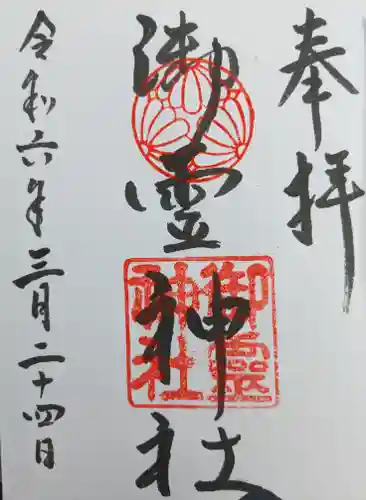 奉拝
御霊神社
御靈神社
令和六年三月二十四日